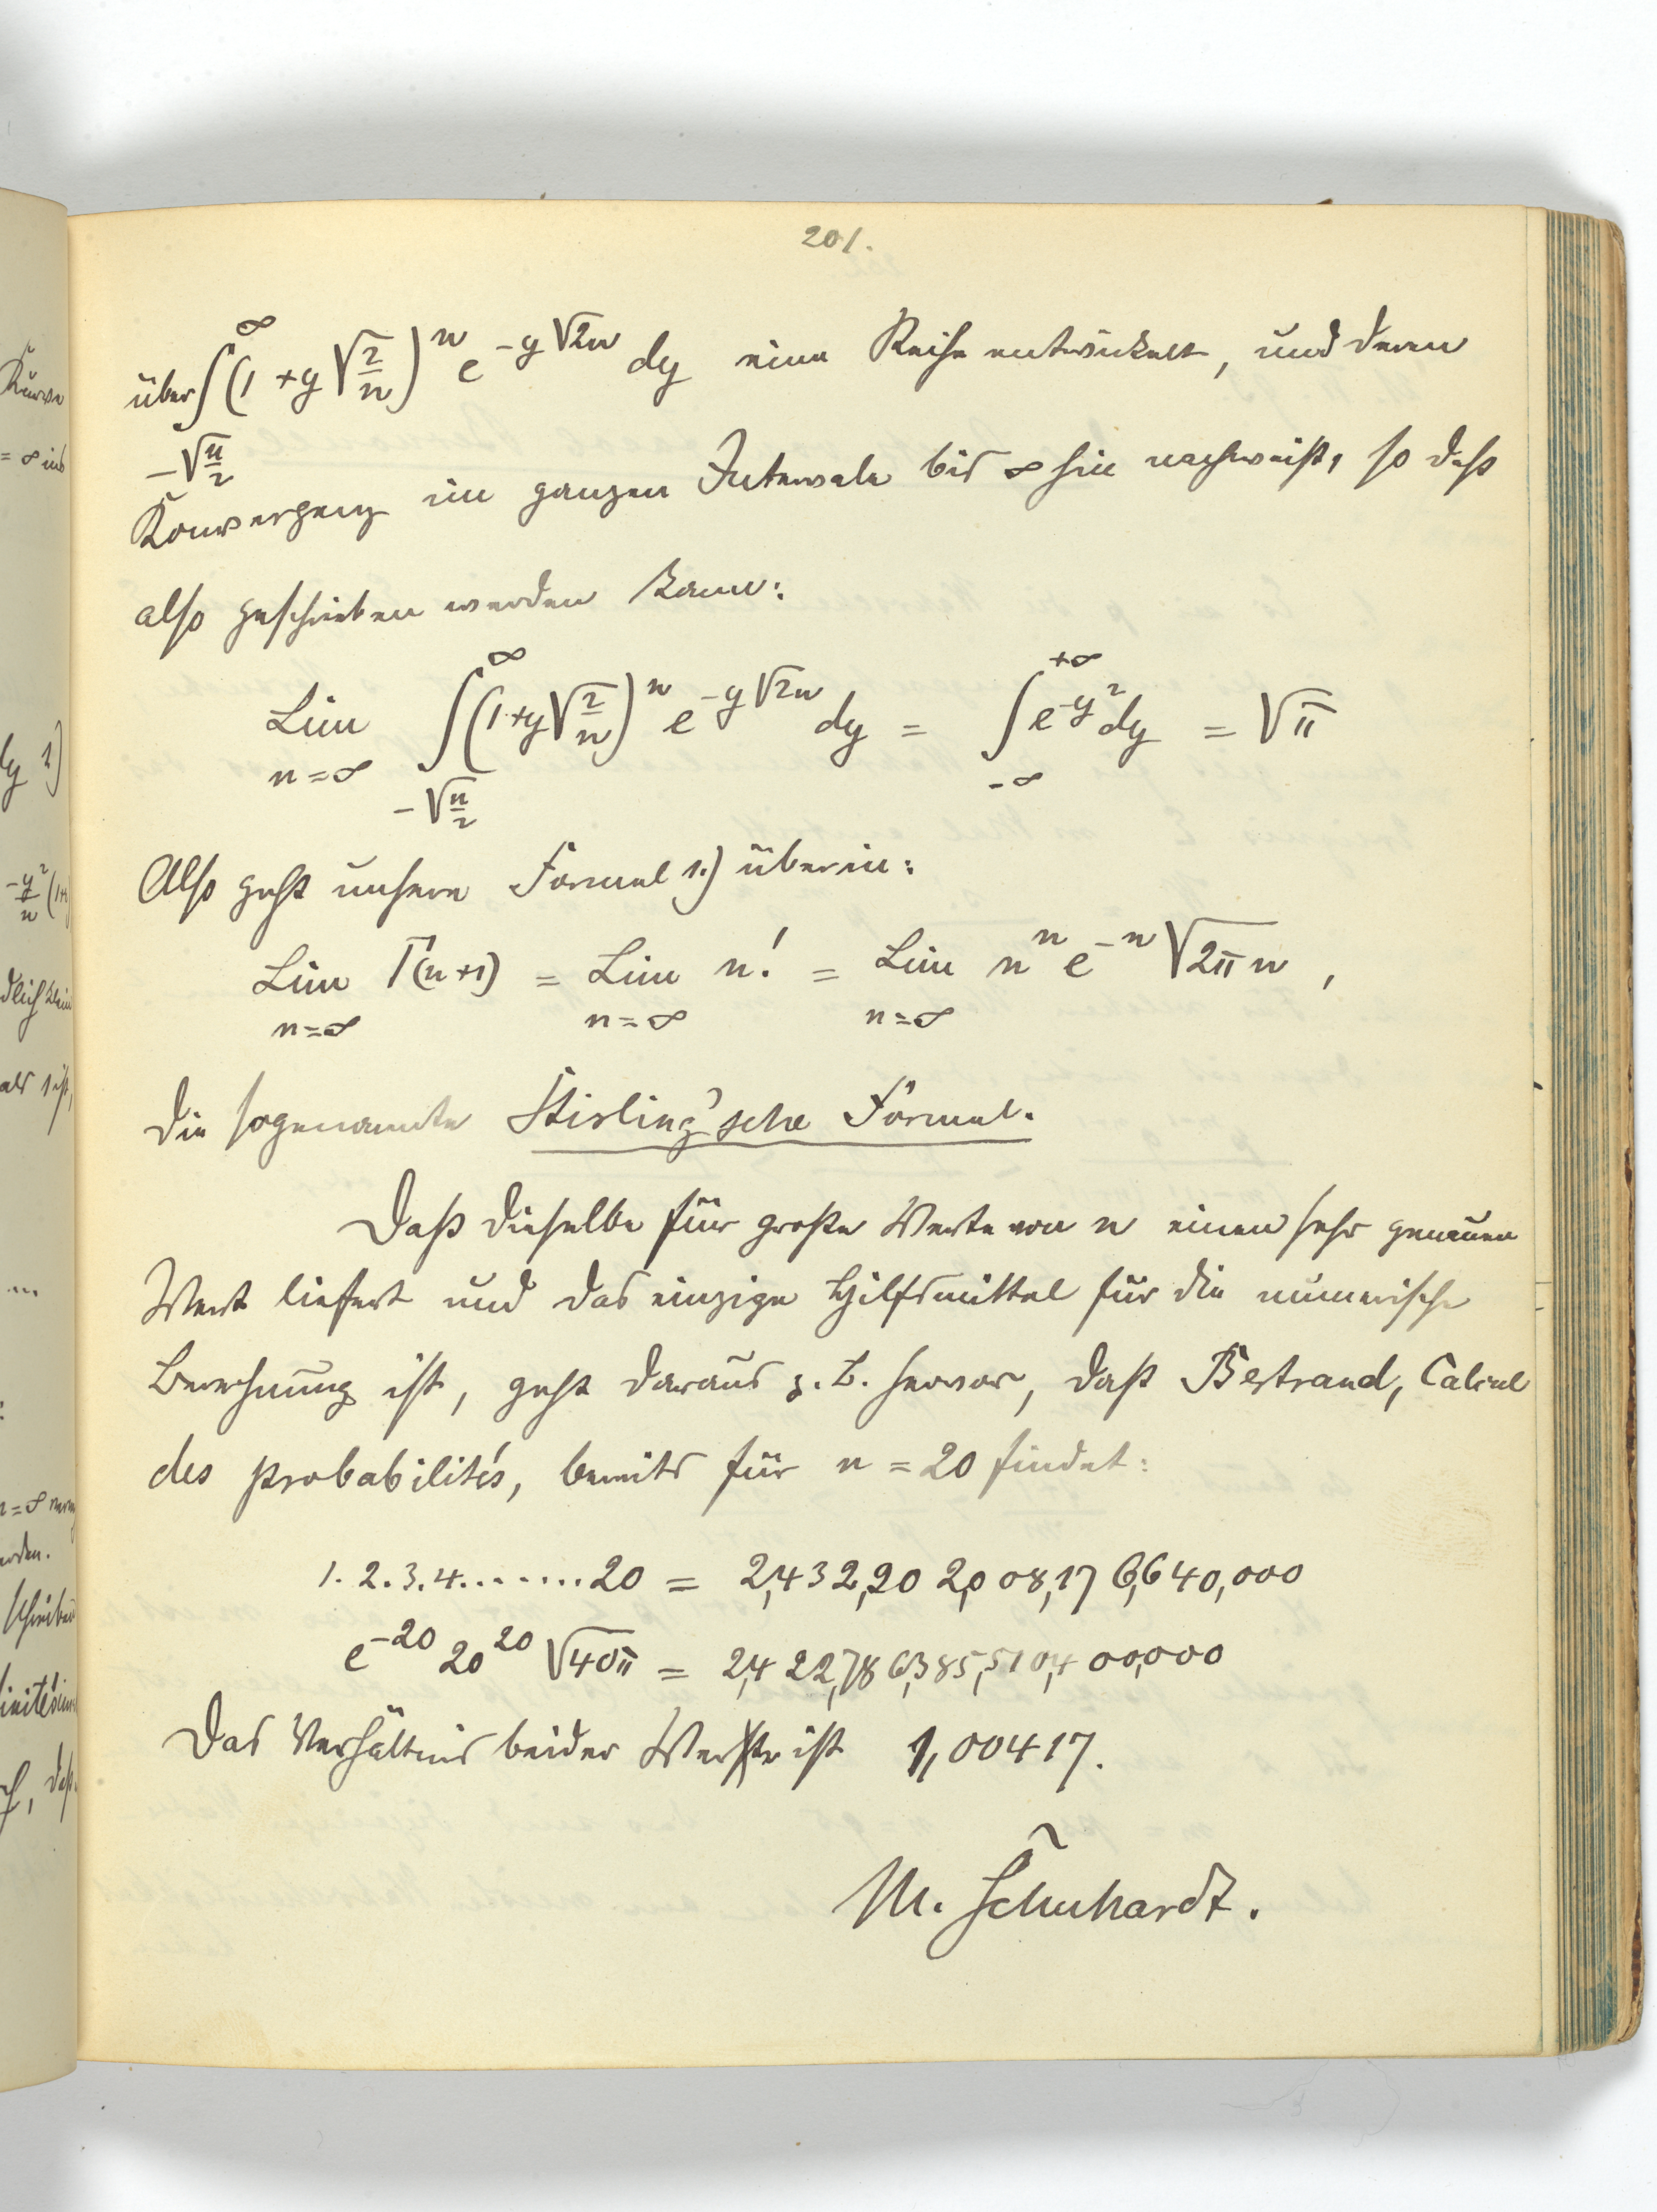 201.
über ∫_{-√(n/2)}^{∞} (1 + y √(2/n))^n e^{-y√2n} dy eine Reihe entwickelt, und deren
Konvergenz im ganzen Intervale bis ∞ hin nachweist, so daß
also geschrieben werden kann:
Lim_{n=∞} ∫_{-√(n/2)}^{∞} (1+y√(2/n))^n e^{-y√2n} dy = ∫_{-∞}^{+∞} e^{-y²} dy = √π
Also geht unsere Formel 1.) über in:
Lim_{n=∞} Γ(n+1) = Lim_{n=∞} n! = Lim_{n=∞} n^n e^{-n} √2πn ,
die sogenannte Stirling'sche Formel.
Daß dieselbe für große Werte von n einen sehr genauen
Wert liefert und das einzige Hilfsmittel für die numerische
Berechnung ist, geht daraus z. B. hervor, daß Bertrand, Calcul
des probabilités, bereits für n = 20 findet:
1. 2. 3. 4. ....... 20 = 2,432,902,008,176,640,000
e^{-20} 20^{20} √40π = 2,422,786,385,510,400,000
Das Verhältnis beider Werte ist 1,00417.
M. Schuhardt.